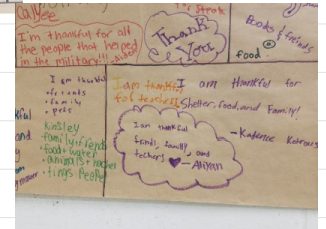 Callyse
I'm thankful for all
the people that helped
in the military!!!
Thank
You
Books & friends
food
I am thankful
• friends
• family
• pets
Kinsley
• family + friends
• food + water
• animals +
• tings People
I am thankful
for teachers
I am thankful for
Shelter, food, and Family!
- Kadence
I am thankful
frends, family, and
techers